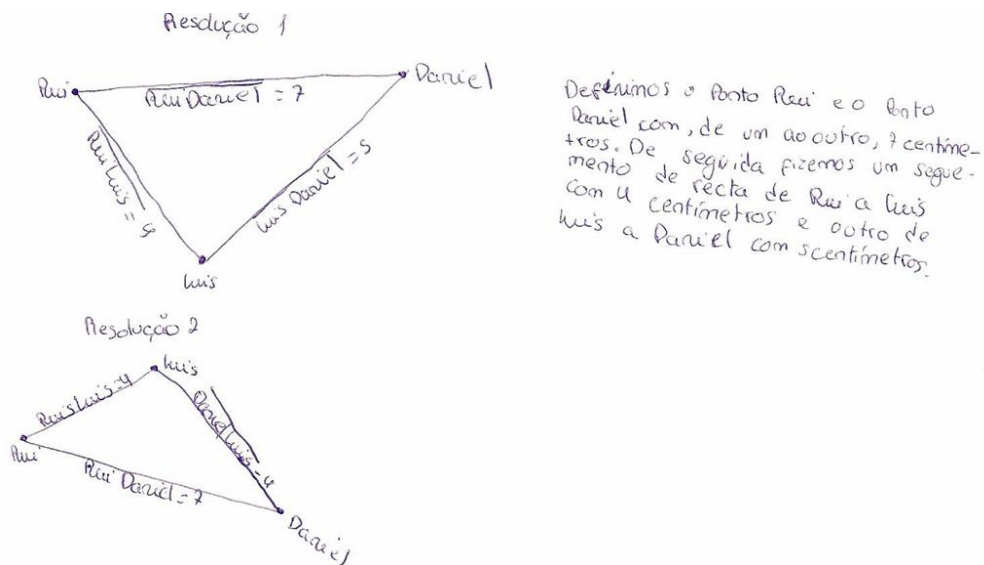 Resolução 1
Rui
Daniel
Rui Daniel = 7
Rui Luis = 4
Luis Daniel = 5
Luis
Definimos o Ponto Rui e o Ponto
Daniel com, de um ao outro, 7 centíme-
tros. De seguida fizemos um segue-
mento de recta de Rui a Luis
com 4 centímetros e outro de
Luis a Daniel com 5 centímetros.
Resolução 2
Luis
Ruis Luis = 4
Daniel Luis = 4
Rui
Rui Daniel = 7
Daniel